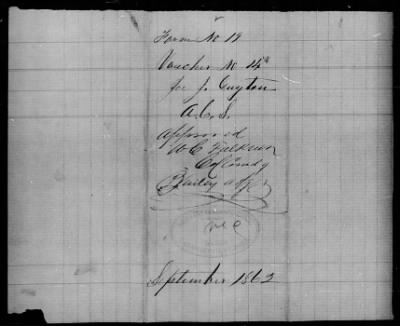 Form No 19
Voucher No 14
for J. Guyton
A.C.S.
approved
W C Falkner
Col Comdg
September 1862